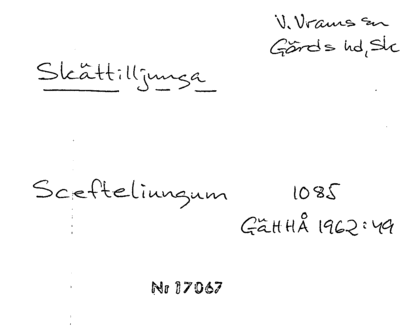 V. Vrams sn
Gärds hd, Sk
Skättilljunga
Scefteliungum 1085
GäHHÅ 1962:49
Nr 17067